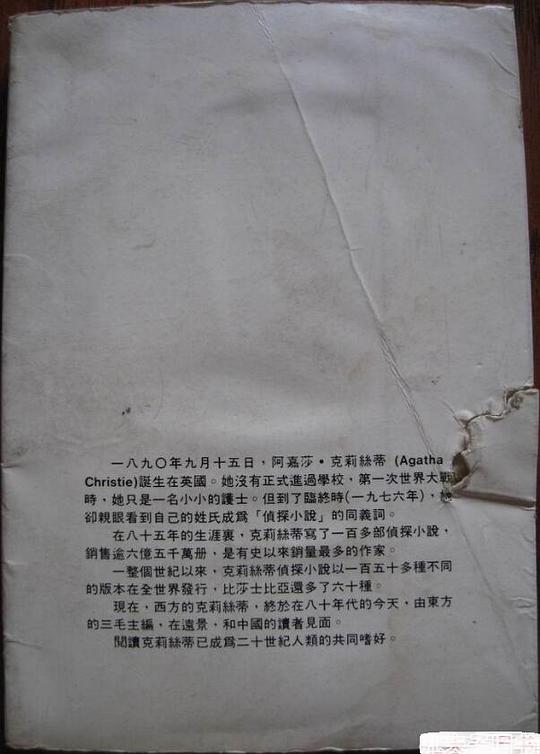 一八九〇年九月十五日，阿嘉莎•克莉絲蒂 (Agatha
Christie)誕生在英國。她沒有正式進過學校，第一次世界大戰
時，她只是一名小小的護士。但到了臨終時(一九七六年)，她
卻親眼看到自己的姓氏成爲「偵探小說」的同義詞。
在八十五年的生涯裏，克莉絲蒂寫了一百多部偵探小說，
銷售逾六億五千萬册，是有史以來銷量最多的作家。
一整個世紀以來，克莉絲蒂偵探小說以一百五十多種不同
的版本在全世界發行，比莎士比亞還多了六十種。
現在，西方的克莉絲蒂，終於在八十年代的今天，由東方
的三毛主編，在遠景，和中國的讀者見面。
閱讀克莉絲蒂已成爲二十世紀人類的共同嗜好。